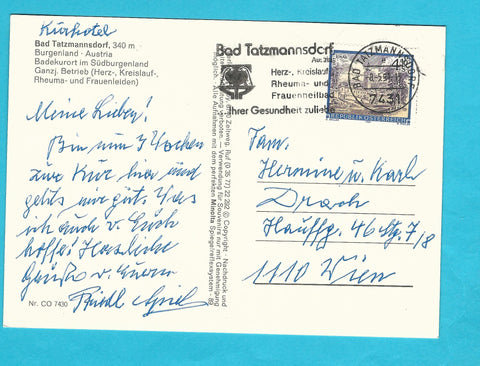 Kurhotel
Bad Tatzmannsdorf, 340 m
Burgenland · Austria
Badekurort im Südburgenland
Ganzj. Betrieb (Herz-, Kreislauf-,
Rheuma- und Frauenleiden)
Meine Lieben!
Bin nun 3 Wochen
zur Kur hier und
gehts mir gut. Was
ich auch v. Euch
hoffe! Herzliche
Grüße v. Eurem
Friedl
Nr. CO 7430
Zeltweg, Ruf (0 35 77) 22 292 © Copyright - Nachdruck und
verboten. — Verwendung für Souvenirs nur mit Genehmigung
Alle Aufnahmen mit dem perfekten Minolta Spiegelreflexsystem - 89
Bad Tatzmannsdorf
Herz-, Kreislauf
Rheuma- und
Frauenheilbad
Ihrer Gesundheit zuliebe
BAD TATZMANNSDORF
7431
REPUBLIK ÖSTERREICH
Fam.
Hermine u. Karl
Drach
Hauffg. 46 Stg. 7/8
1110 Wien